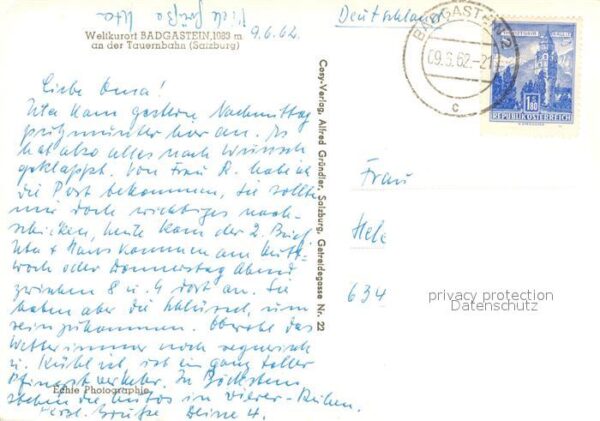 Viele Grüße Uta
9.6.62.
Deutschland
Weltkurort BADGASTEIN, 1083 m
an der Tauernbahn (Salzburg)
BADGASTEIN 2
09.6.62-21
c
1.80
REPUBLIK ÖSTERREICH
Liebe Oma!
Uta kam gestern Nachmittag
putzmunter hier an. Es
hat also alles nach Wunsch
geklappt. Von Frau R. habe ich
die Post bekommen, sie sollte
mir doch wichtiges nach-
schicken, heute kam der 2. Brief.
Uta + Hans kommen am Mitt-
woch oder Donnerstag Abend
zwischen 8 u. 9 dort an. Sie
haben aber die Schlüssel, um
reinzukommen. Obwohl das
Wetter immer noch regnerisch
u. kühl ist, ist ein ganz toller
Pfingstverkehr. In Böckstein
stehen die Autos in Vierer-Reihen.
Herzl. Grüße Deine
Echte Photographie
Cosy-Verlag, Alfred Gründler, Salzburg, Getreidegasse Nr. 22
Frau
Hele
634
privacy protection
Datenschutz